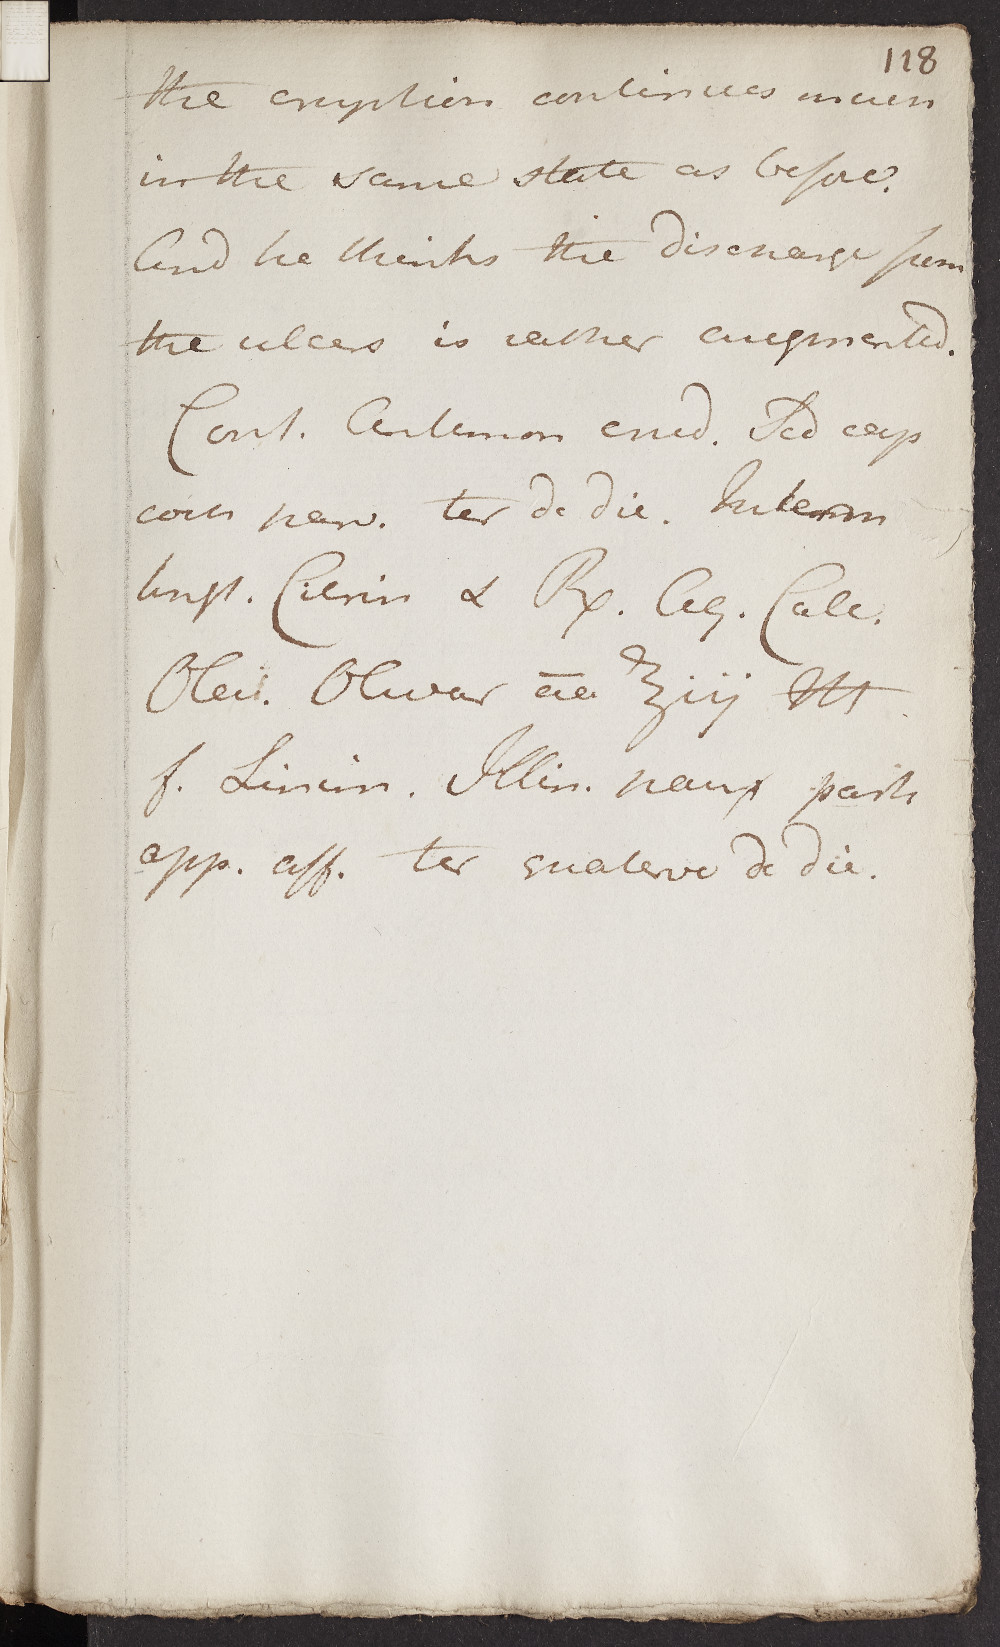 118
the eruption continues much
in the same state as before.
And he thinks the discharge from
the ulcers is rather augmented.
Cont. Antimon crud. Sed cap
coch parv. ter de die. Interm
Ungt. Citrin & Rx. Aq. Calc.
Olei. Olivar aa ℥iij M
f. Linim. Illin. paux part
app. aff. ter quaterve de die.